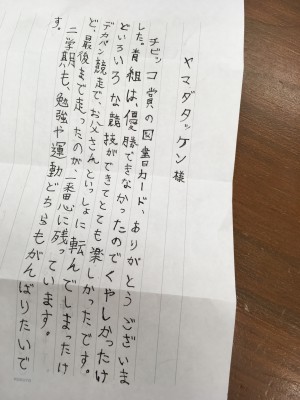 ヤマダタッケン様
チビッコ賞の図書カード、ありがとうございま
した。青組は、優勝できなかったのでくやしかったけ
どいろいろな競技ができてとても楽しかったです。
デカパン競走で、お父さんといっしょに転んでしまったけ
ど、最後まで走ったのが、一番思に残っています。
二学期も、勉強や運動どちらもがんばりたいで
す。